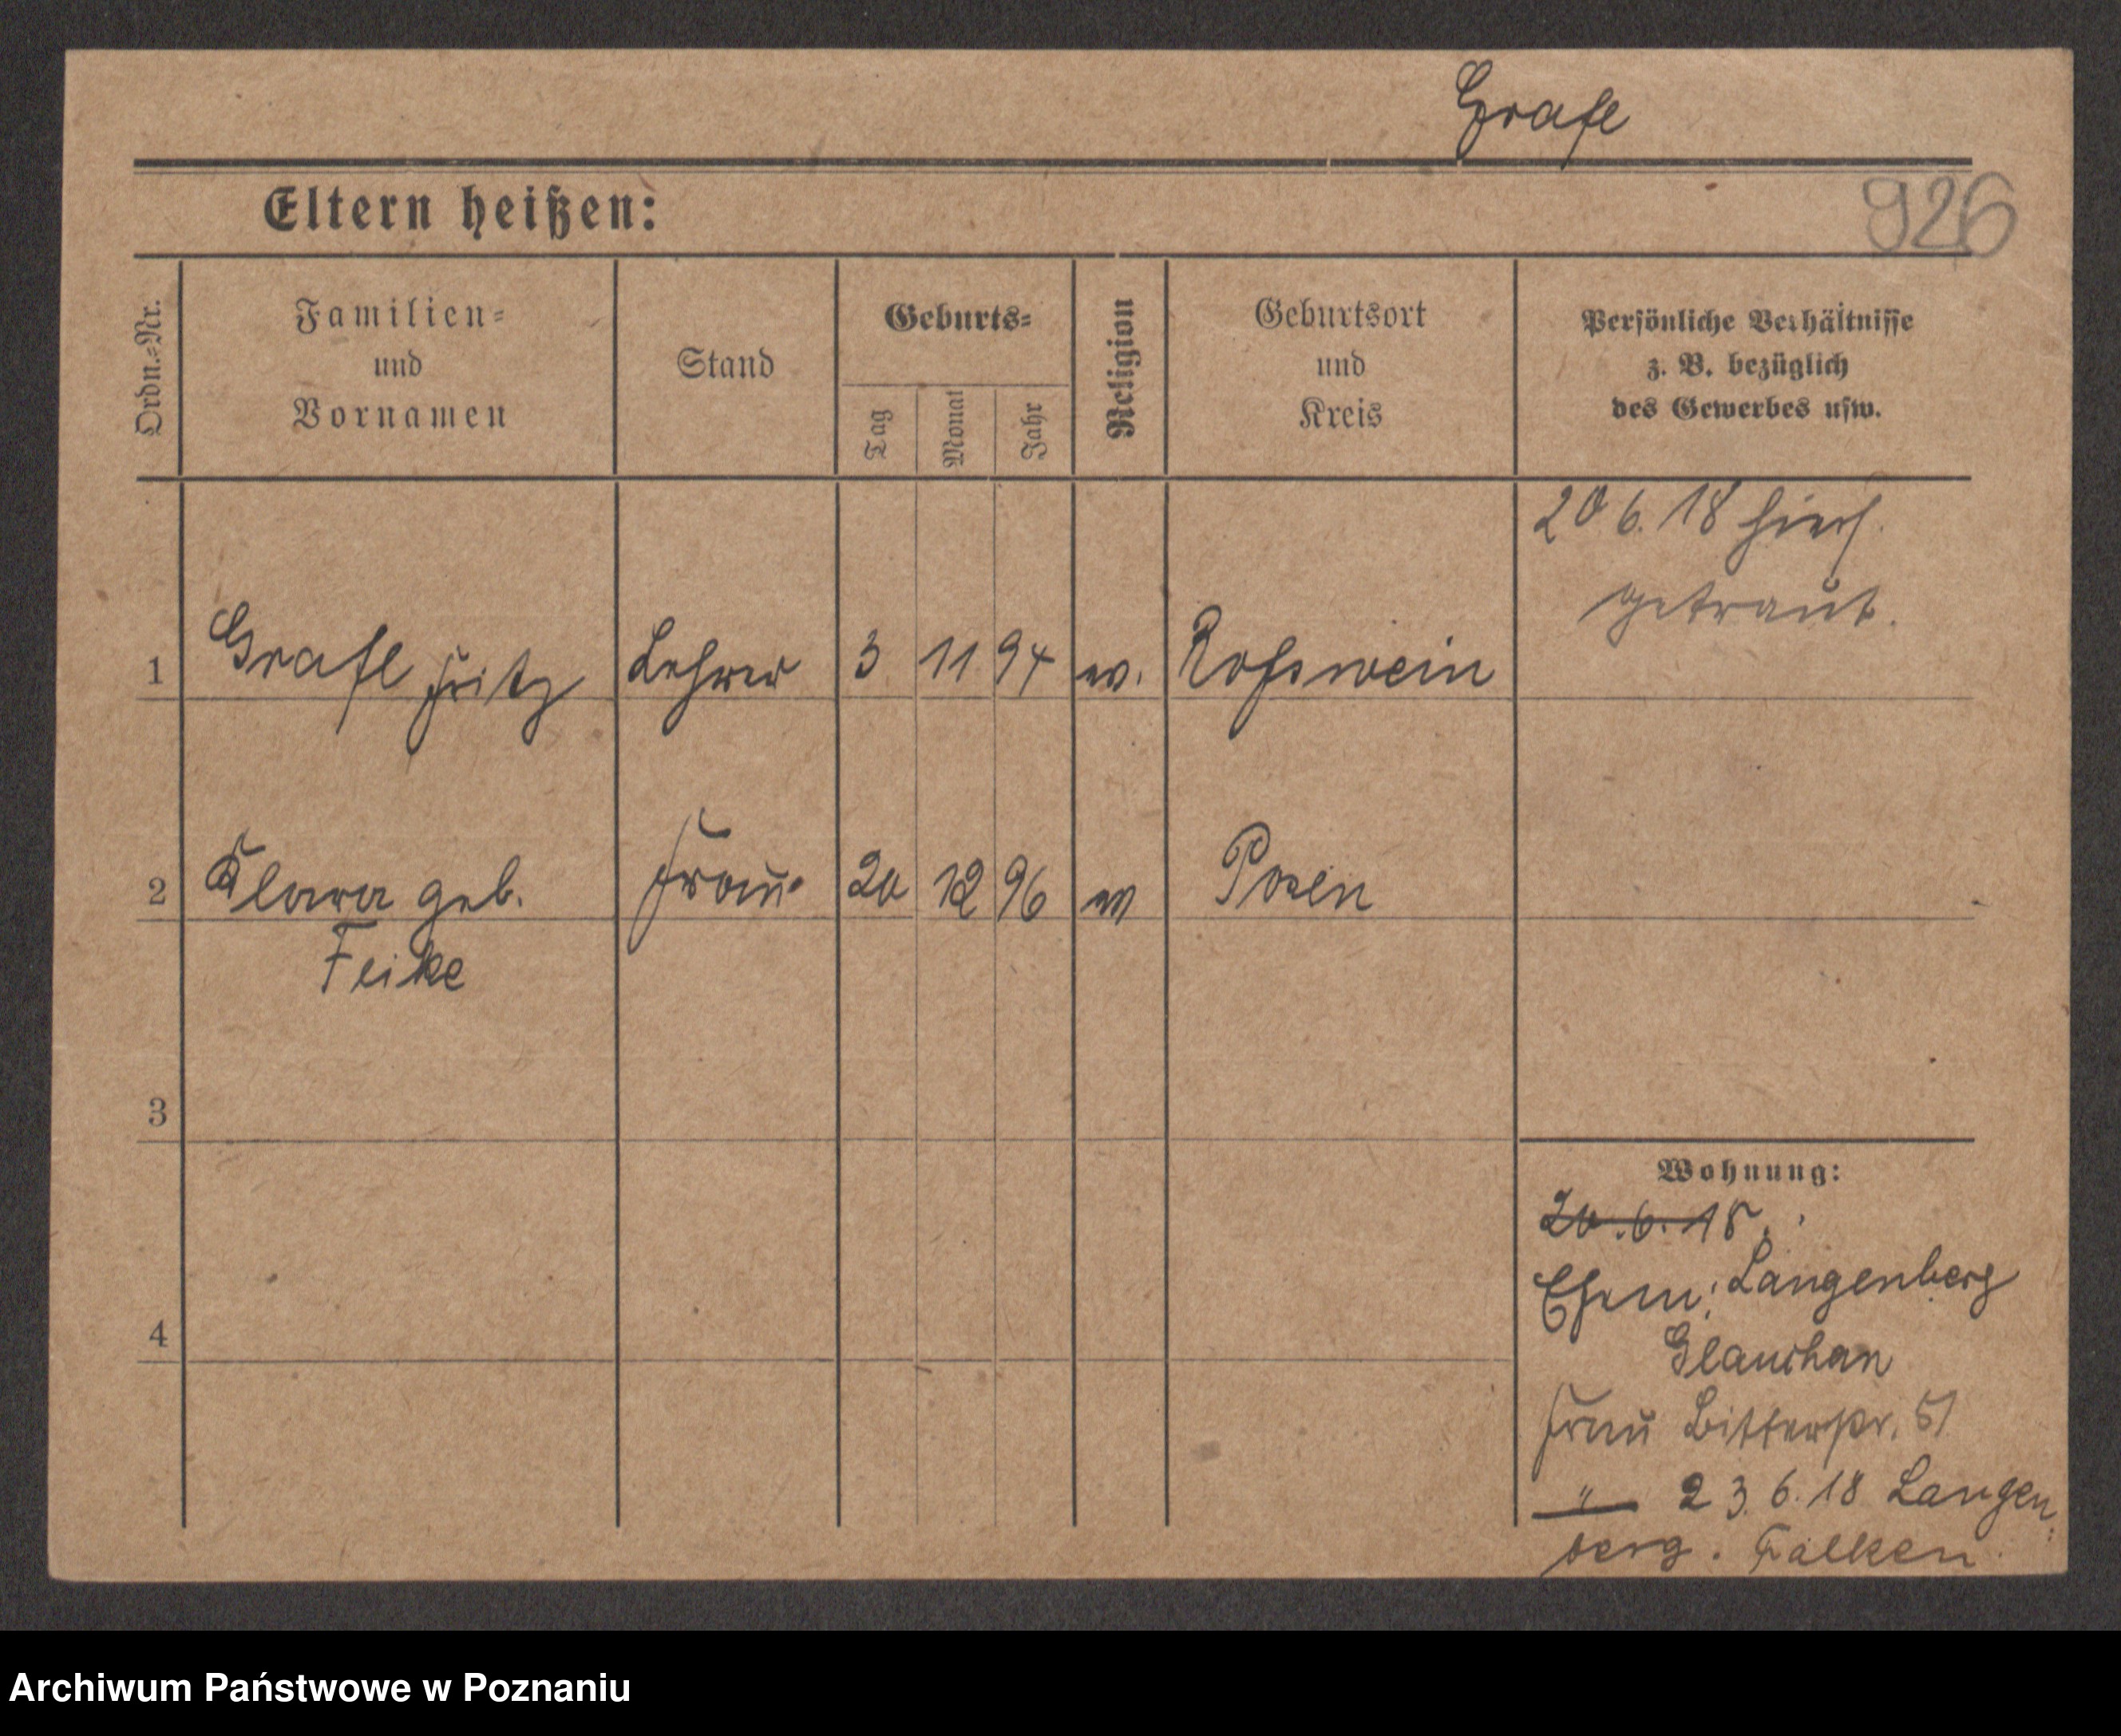 Grafe
Eltern heißen:
926
Ordn.-Nr.
Familien-
und
Vornamen
Stand
Geburts-
Tag
Monat
Jahr
Religion
Geburtsort
und
Kreis
Persönliche Verhältnisse
z. B. bezüglich
des Gewerbes usw.
20 6. 18 hiers.
getraut.
1 Grafe Fritz Lehrer 3 11 94 ev. Rosswein
2 Klara geb. Frau 20 12 96 ev Posen
Feike
3
4
Wohnung:
20.6.18.
Ehem: Langenberg
Glauchau
Frau Bitterstr. 51
" 23. 6. 18 Langen
berg. Falken
Archiwum Państwowe w Poznaniu